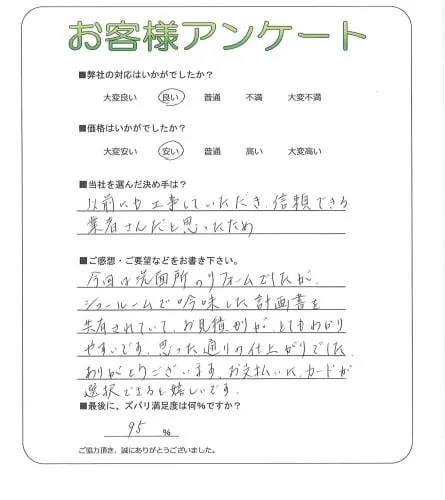 お客様アンケート
■弊社の対応はいかがでしたか？
大変良い 良い 普通 不満 大変不満
■価格はいかがでしたか？
大変安い 安い 普通 高い 大変高い
■当社を選んだ決め手は？
以前にも工事していただき、信頼できる
業者さんだと思ったため
■ご感想・ご要望などをお書き下さい。
今回は洗面所のリフォームでしたが、
ショールームで吟味した計画書を
共有されていて、お見積りが、とてもわかり
やすいです。思った通りの仕上がりでした。
ありがとうございます。お支払いに、カードが
選択できると嬉しいです。
■最後に、ズバリ満足度は何％ですか？
95 ％
ご協力頂き、誠にありがとうございました。